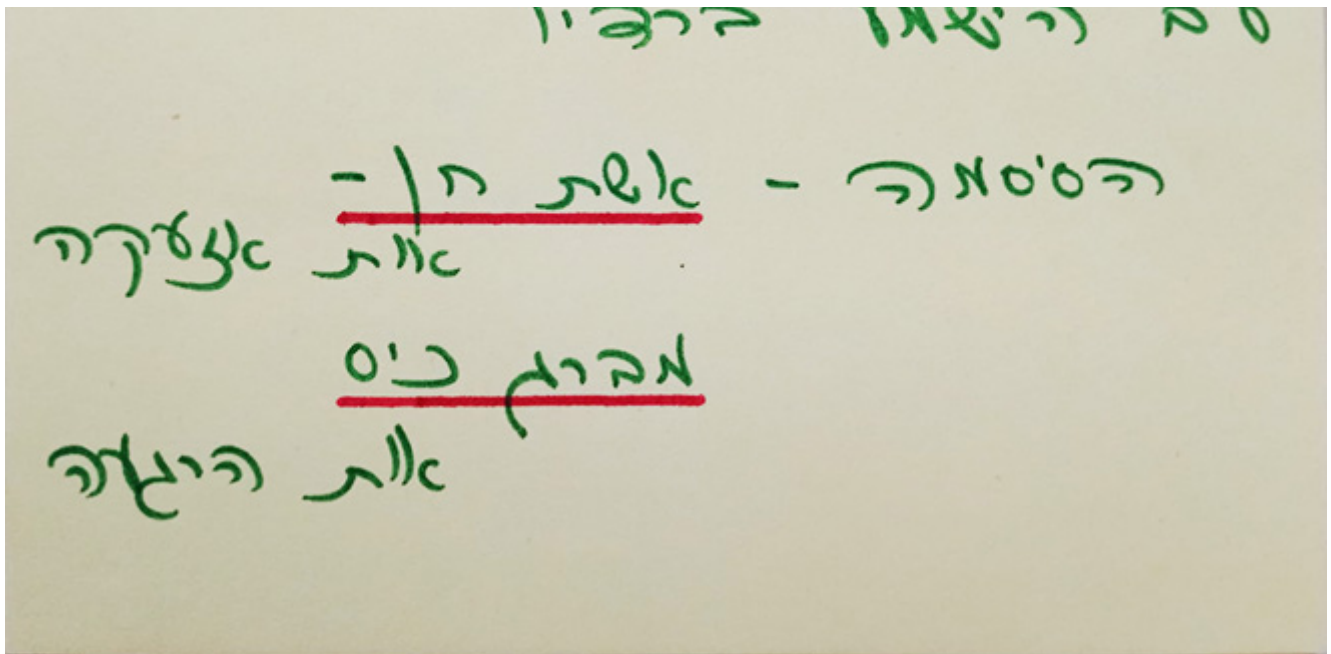 ברדיו
הסיסמה - אשת חן -
אות אזעקה
מברג כיס
אות הרגעה